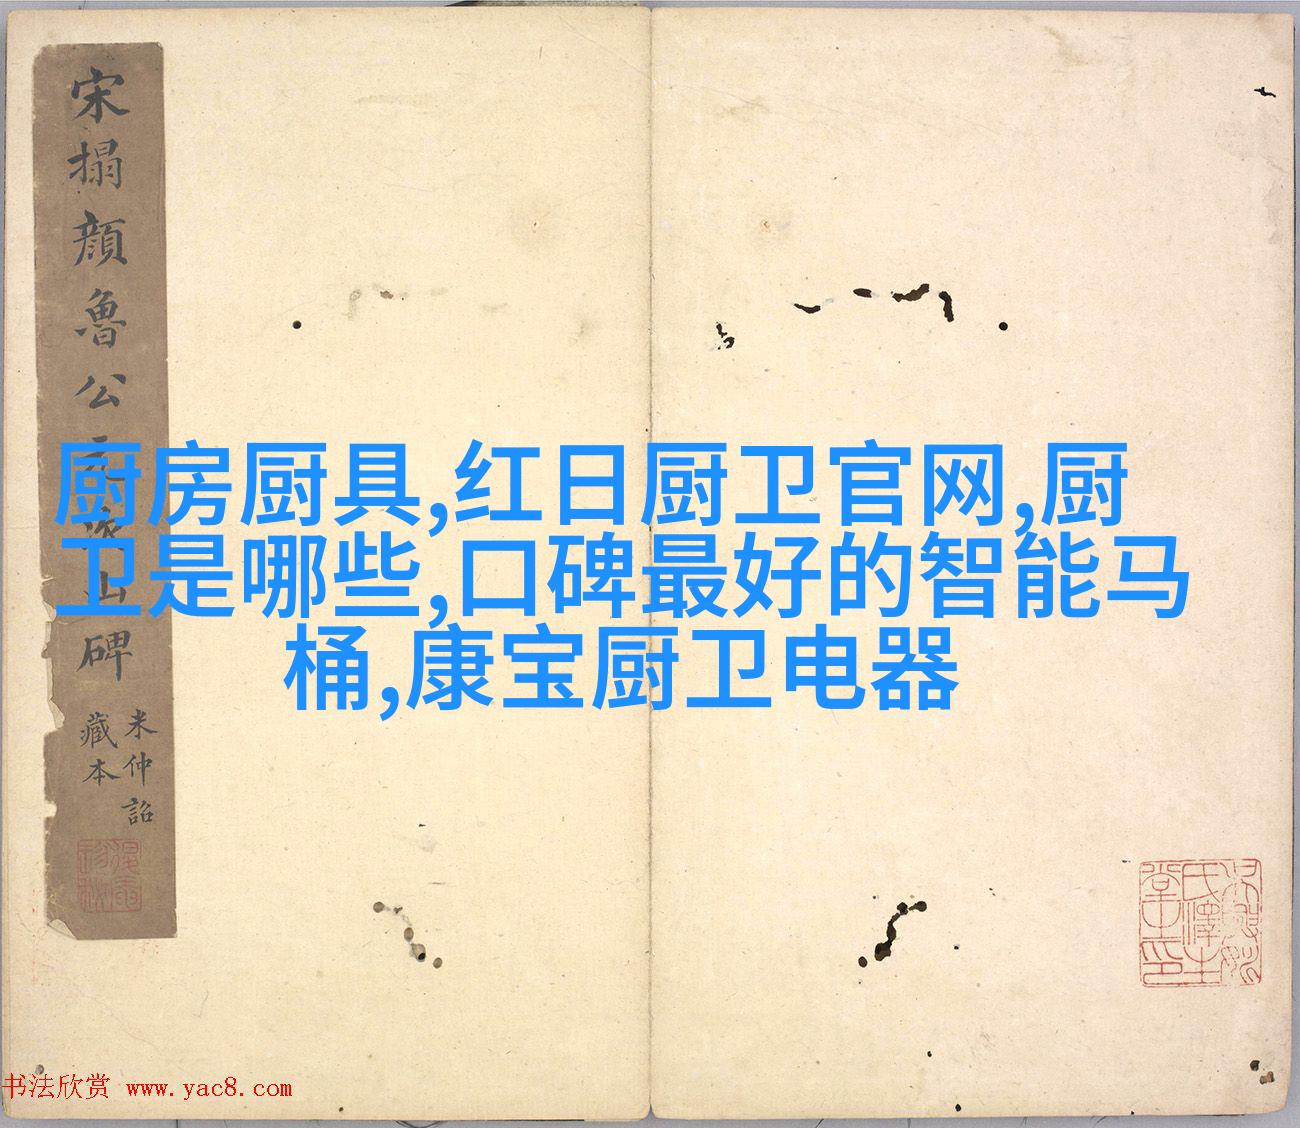 宋搨顔魯公
碑
米仲詔
藏本
厨房厨具,红日厨卫官网,厨
卫是哪些,口碑最好的智能马
桶,康宝厨卫电器
书法欣赏 www.yac8.com